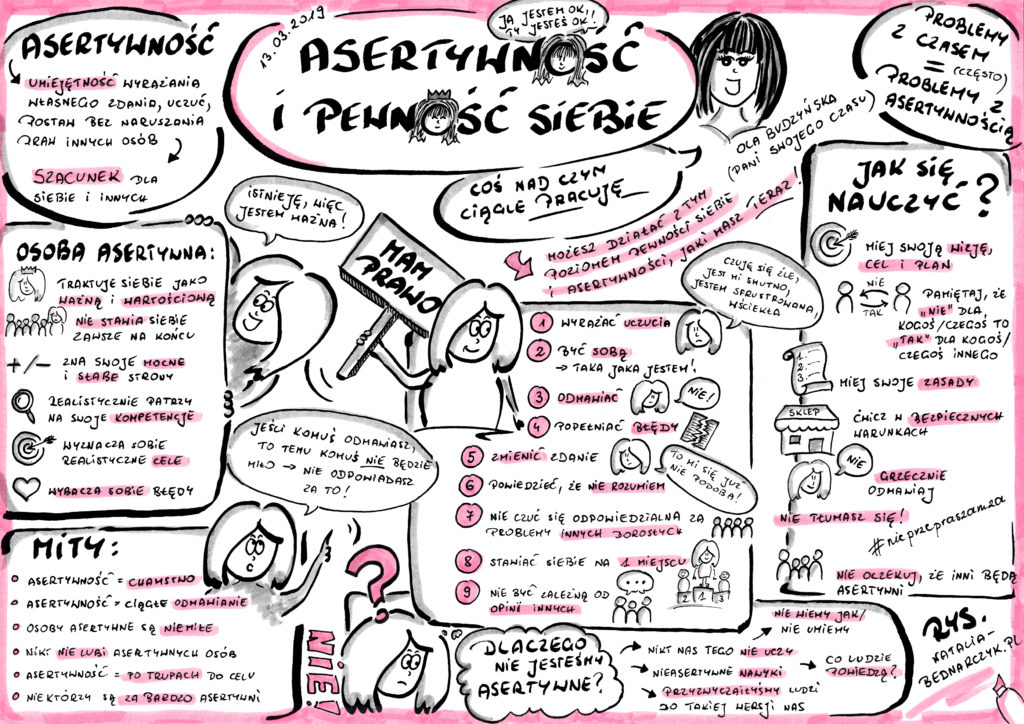 13.03.2019
ASERTYWNOŚĆ
I PEWNOŚĆ SIEBIE
JA JESTEM OK!!
TY JESTEŚ OK!
ASERTYWNOŚĆ
UMIEJĘTNOŚĆ WYRAŻANIA
WŁASNEGO ZDANIA, UCZUĆ,
POSTAW BEZ NARUSZANIA
PRAW INNYCH OSÓB
SZACUNEK DLA
SIEBIE I INNYCH
COŚ NAD CZYM
CIĄGLE PRACUJĘ
OLA BUDZYŃSKA
(PANI SWOJEGO CZASU)
PROBLEMY
Z CZASEM
= (CZĘSTO)
PROBLEMY Z
ASERTYWNOŚCIĄ
MOŻESZ DZIAŁAĆ Z TYM
POZIOMEM PEWNOŚCI SIEBIE
I ASERTYWNOŚCI, JAKI MASZ TERAZ!
ISTNIEJĘ, WIĘC
JESTEM WAŻNA!
OSOBA ASERTYWNA:
TRAKTUJE SIEBIE JAKO
WAŻNĄ I WARTOŚCIOWĄ
NIE STAWIA SIEBIE
ZAWSZE NA KOŃCU
+/- ZNA SWOJE MOCNE
I SŁABE STRONY
REALISTYCZNIE PATRZY
NA SWOJE KOMPETENCJE
WYZNACZA SOBIE
REALISTYCZNE CELE
WYBACZA SOBIE BŁĘDY
MAM
PRAWO
1 WYRAŻAĆ UCZUCIA
2 BYĆ SOBĄ
→ TAKA JAKA JESTEM!
3 ODMAWIAĆ
NIE!
4 POPEŁNIAĆ BŁĘDY
5 ZMIENIĆ ZDANIE
TO MI SIĘ JUŻ
NIE PODOBA!
6 POWIEDZIEĆ, ŻE NIE ROZUMIEM
7 NIE CZUĆ SIĘ ODPOWIEDZIALNA ZA
PROBLEMY INNYCH DOROSŁYCH
8 STAWIAĆ SIEBIE NA 1 MIEJSCU
2 1 3
9 NIE BYĆ ZALEŻNĄ OD
OPINII INNYCH
CZUJĘ SIĘ ŹLE,
JEST MI SMUTNO,
JESTEM SFRUSTROWANA,
WŚCIEKŁA
JAK SIĘ
NAUCZYĆ?
MIEJ SWOJĄ WIZJĘ,
CEL I PLAN
NIE
TAK
PAMIĘTAJ, ŻE
„NIE” DLA
KOGOŚ/CZEGOŚ TO
„TAK” DLA KOGOŚ/
CZEGOŚ INNEGO
1.
2.
3.
MIEJ SWOJE ZASADY
SKLEP
ĆWICZ W BEZPIECZNYCH
WARUNKACH
NIE
GRZECZNIE
ODMAWIAJ
NIE TŁUMASZ SIĘ!
#nieprzepraszamza
NIE OCZEKUJ, ŻE INNI BĘDĄ
ASERTYWNI
JEŚLI KOMUŚ ODMAWIASZ,
TO TEMU KOMUŚ NIE BĘDZIE
MIŁO → NIE ODPOWIADASZ
ZA TO!
MITY:
ASERTYWNOŚĆ = CHAMSTWO
ASERTYWNOŚĆ = CIĄGŁE ODMAWIANIE
OSOBY ASERTYWNE SĄ NIEMIŁE
NIKT NIE LUBI ASERTYWNYCH OSÓB
ASERTYWNOŚĆ = PO TRUPACH DO CELU
NIEKTÓRZY SĄ ZA BARDZO ASERTYWNI
NIE!
?
DLACZEGO
NIE JESTEŚMY
ASERTYWNE?
→ NIKT NAS TEGO NIE UCZY
→ NIE WIEMY JAK/
NIE UMIEMY
→ NIEASERTYWNE NAWYKI
→ CO LUDZIE
POWIEDZĄ?
→ PRZYZWYCZAIŁYŚMY LUDZI
DO TAKIEJ WERSJI NAS
RYS.
NATALIA-
BEDNARCZYK.PL